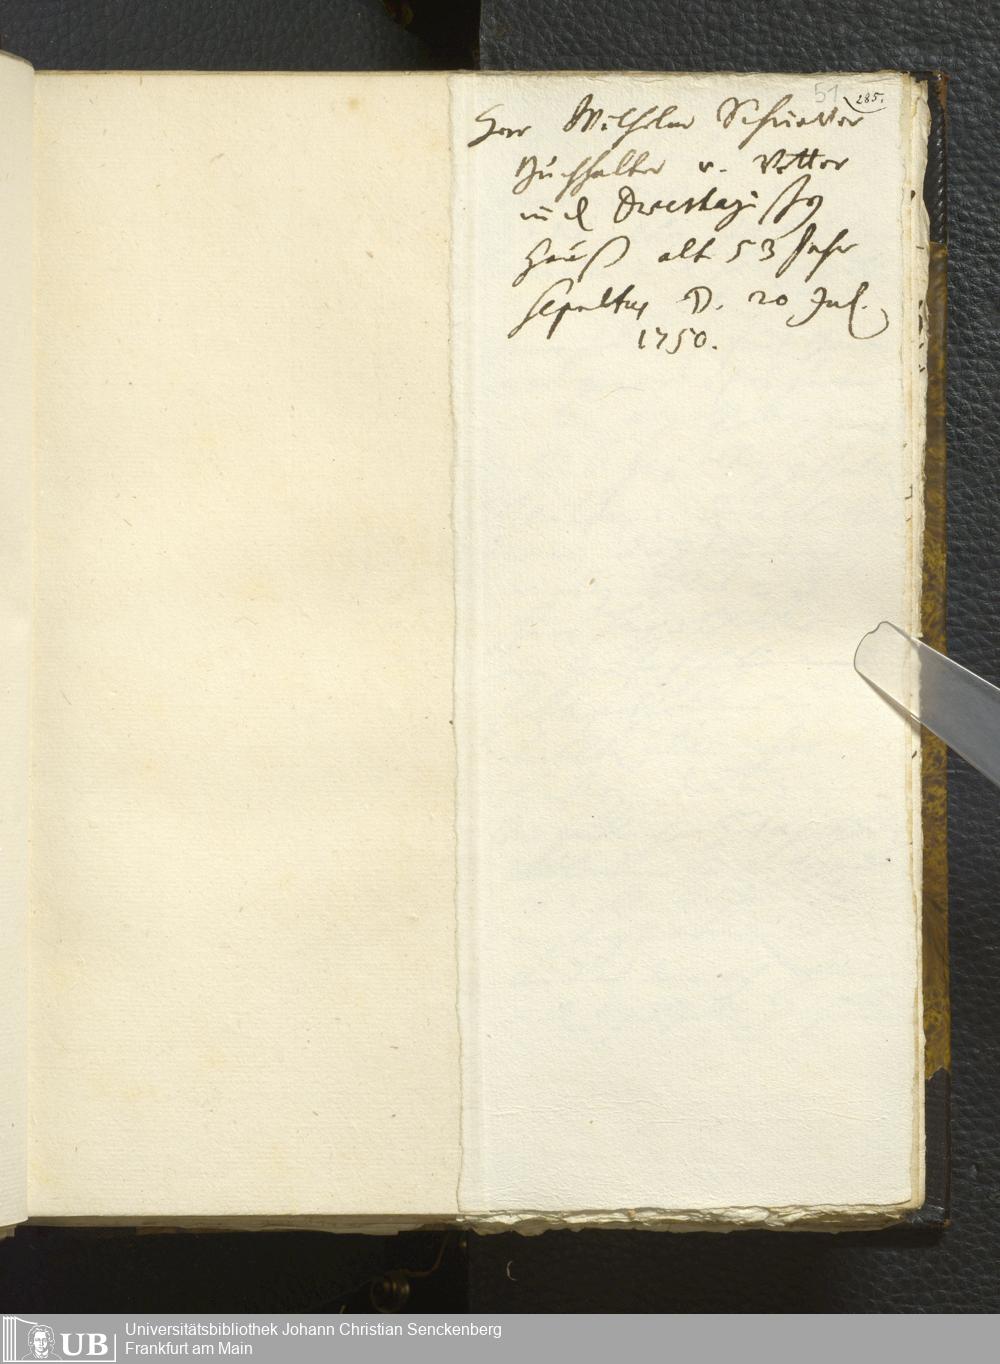 51 285.
Herr Wilhelm
Buchhalter u. Vetter
im
Hauß alt 53 Jahr
sepultus D. 20 Jul.
1750.
UB
Universitätsbibliothek Johann Christian Senckenberg
Frankfurt am Main